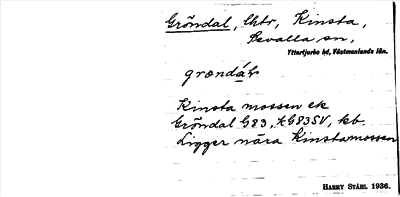 Gröndal, lhtr, Kinsta,
Sevalla sn,
Yttertjurbo hd, Västmanlands län.
grœndá̠l
Kinsta mossen ek
Gröndal G83, AG83SV, kb.
Ligger nära Kinstamossen
HARRY STÅHL 1936.